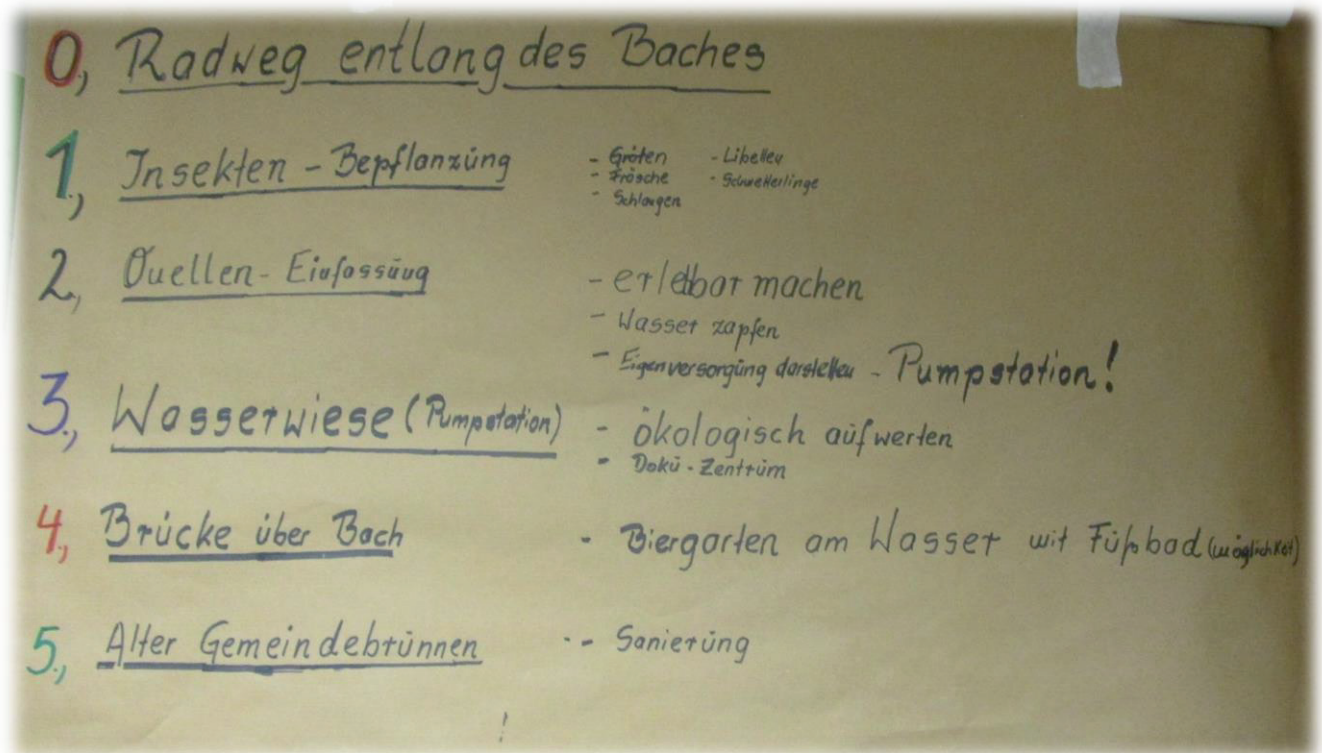 0., Radweg entlang des Baches
1., Insekten - Bepflanzung - Gröten - Libellen
- Frösche - Schmetterlinge
- Schlangen
2., Quellen - Einfassung - erlebbar machen
- Wasser zapfen
- Eigenversorgung darstellen - Pumpstation!
3., Wasserwiese (Pumpstation) - ökologisch aufwerten
- Doku - Zentrum
4., Brücke über Bach - Biergarten am Wasser mit Fußbad (möglichkeit)
5., Alter Gemeindebrunnen - - Sanierung